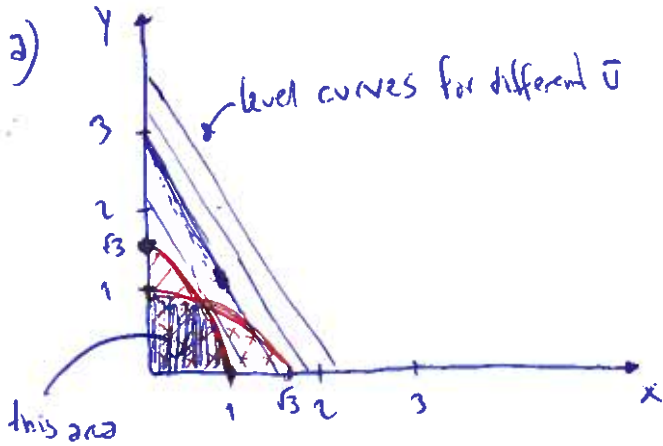 a)
Y
level curves for different Ū
3
2
√3
1
1
√3
2
3
x
this area